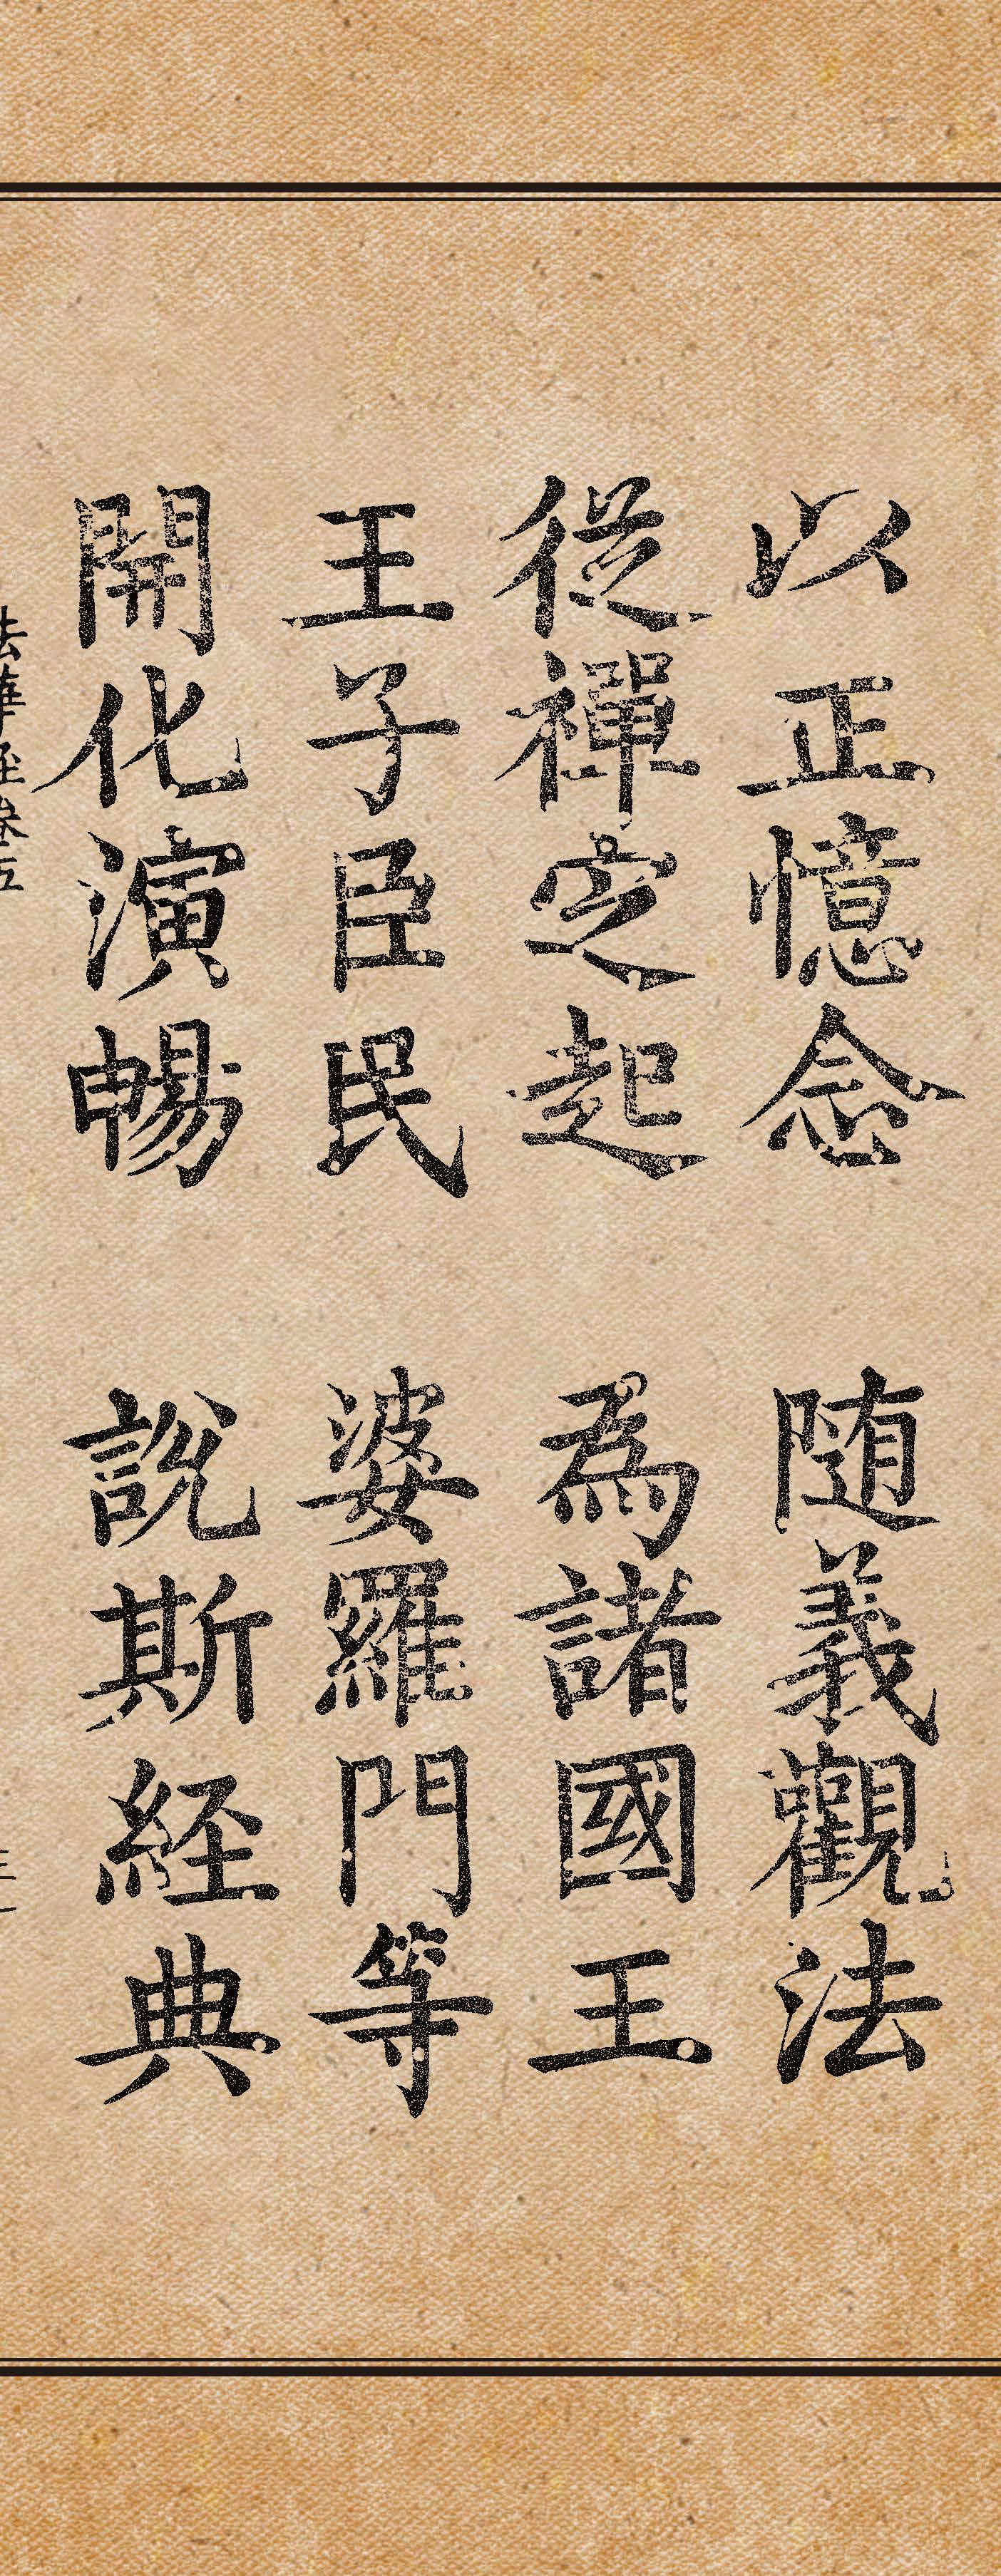 以正憶念　随義觀法
從禪定起　為諸國王
王子臣民　婆羅門等
開化演暢　說斯経典
法華経巻五